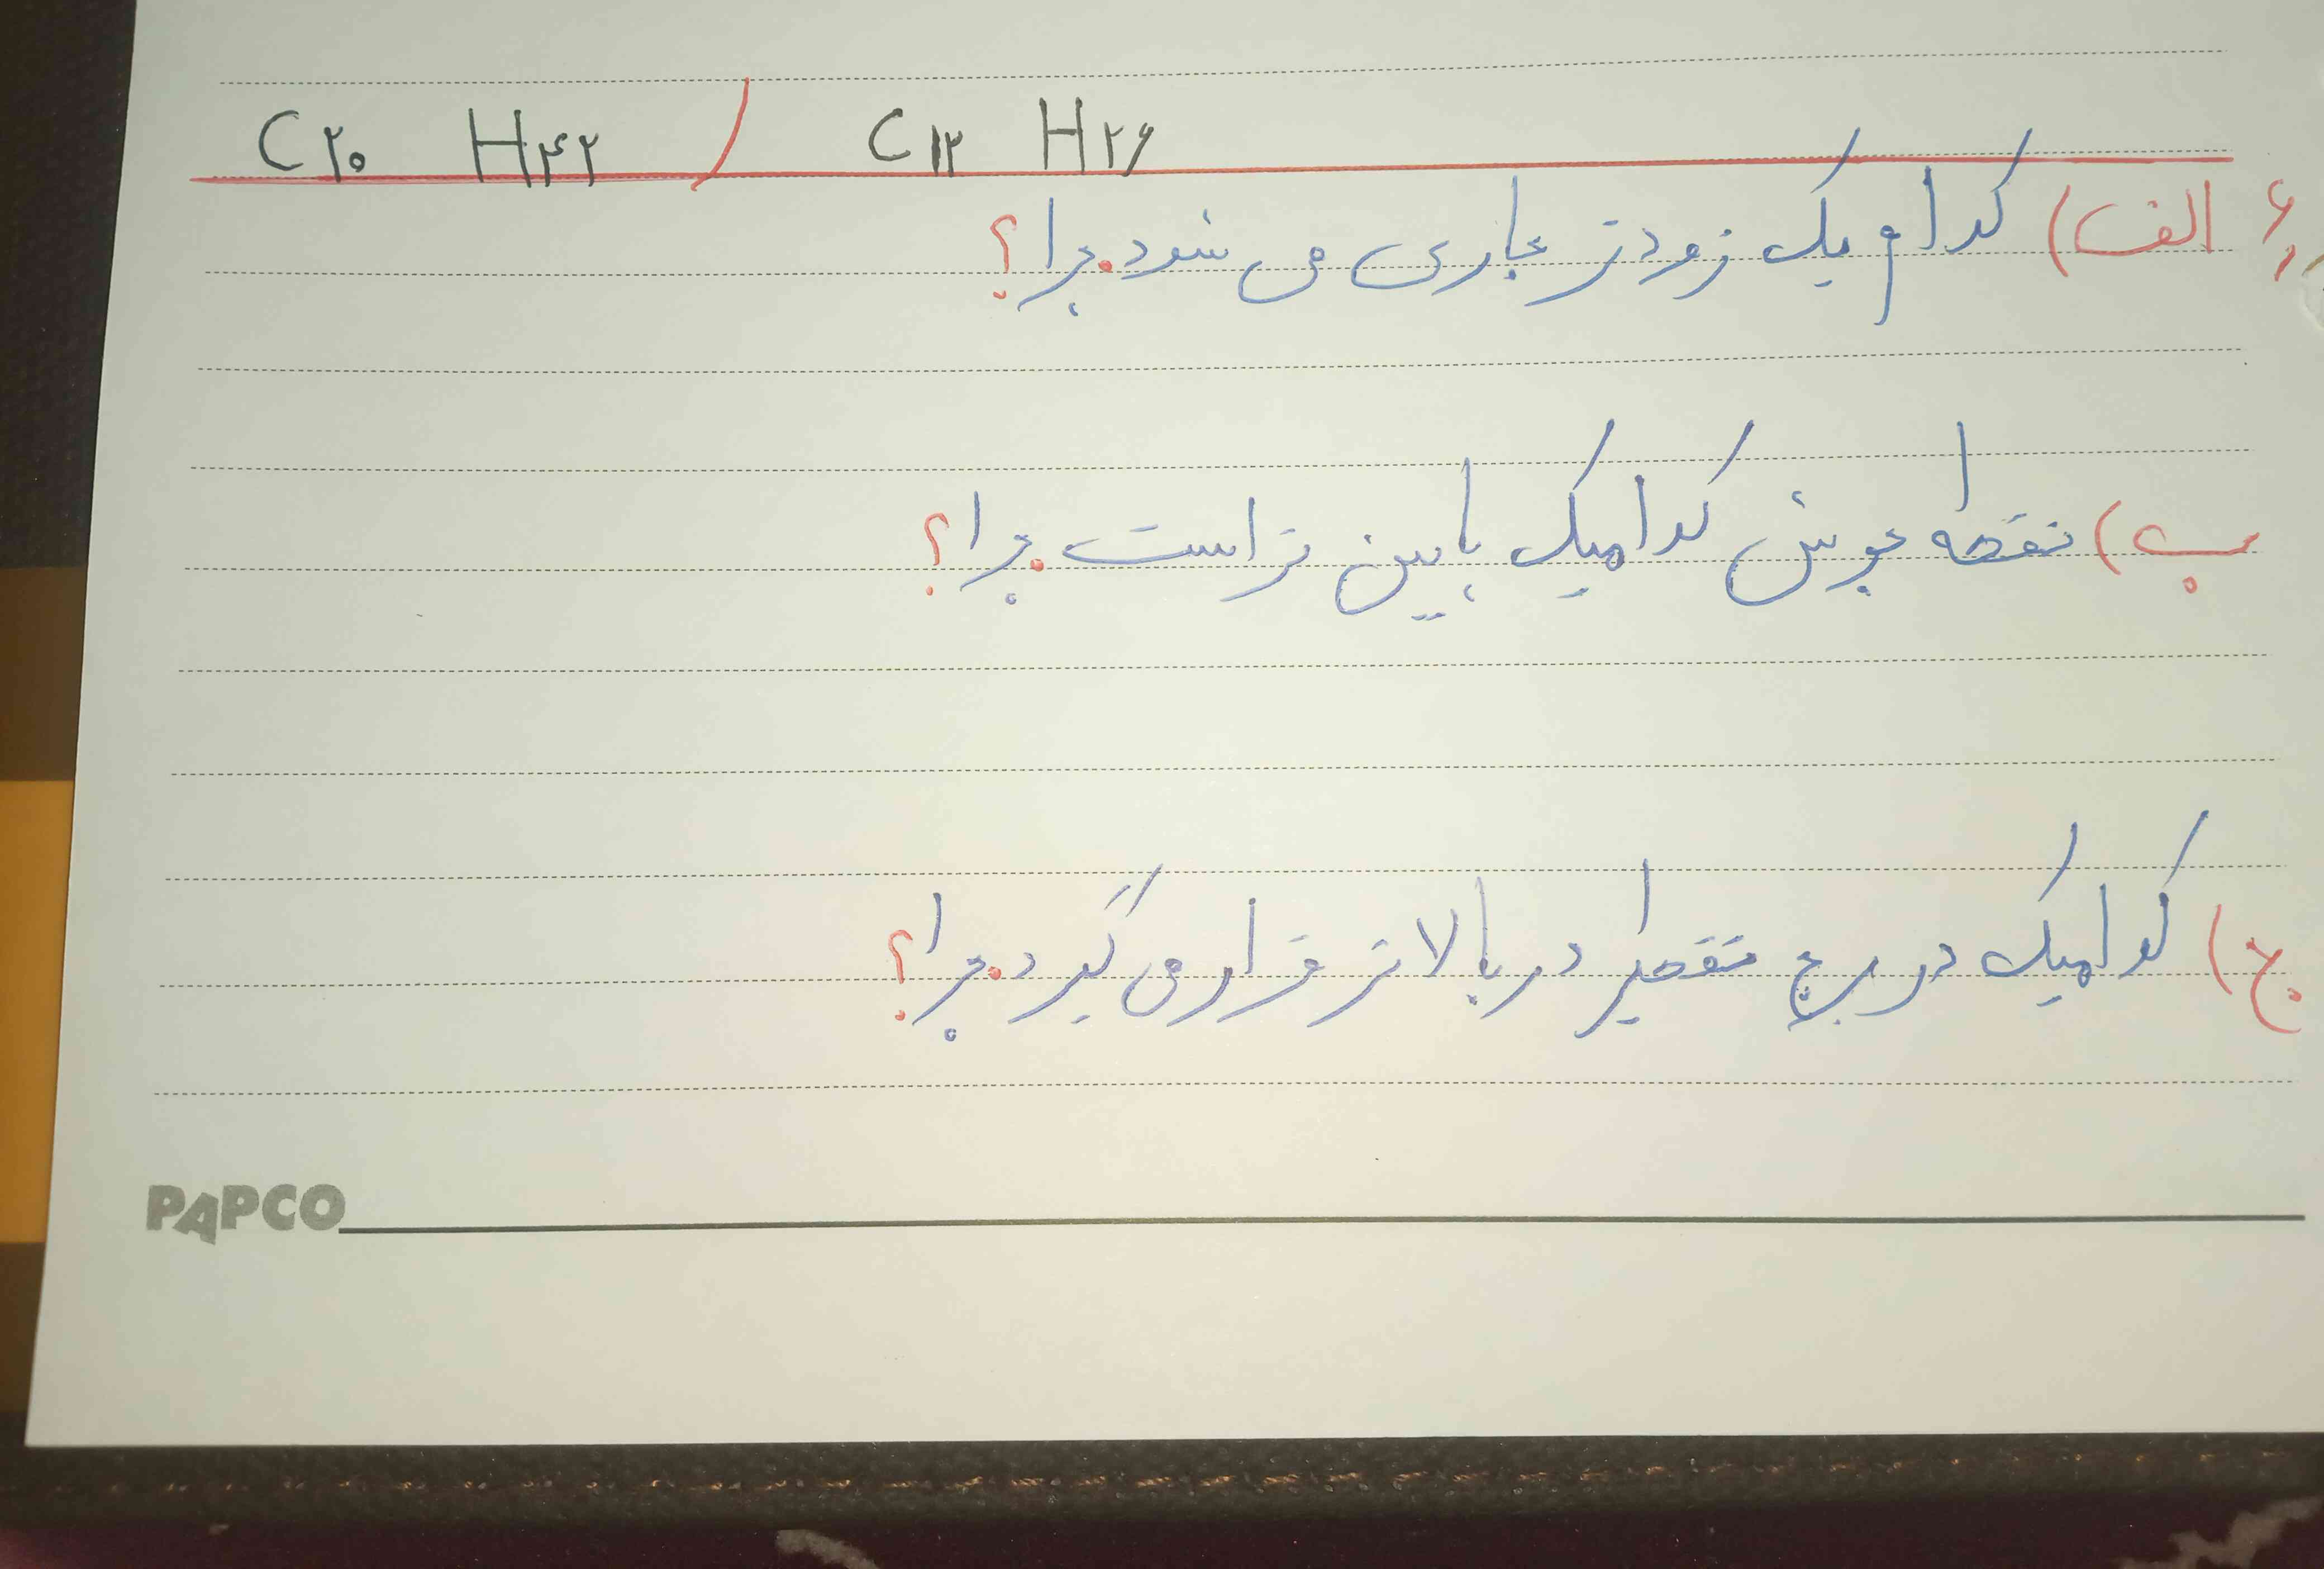 C۲۰ H۴۲ / C۱۲ H۲۶
۶, الف) کدام یک زودتر جاری می شود. چرا؟
ب) نقطه جوش کدامیک پایین تر است. چرا؟
ج) کدامیک در برج تقطیر در بالاتر قرار می گیرد. چرا؟
PAPCO